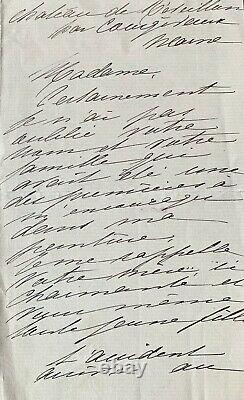 château de
par
Marne
Madame,
Certainement
je n'ai pas
oublié votre
nom et votre
famille qui
avait été une
des premières à
m'encourager
dans ma
peinture,
Je me rappelle
votre mère, si
charmante et
vous même
toute jeune fille
L'accident
arrivé au